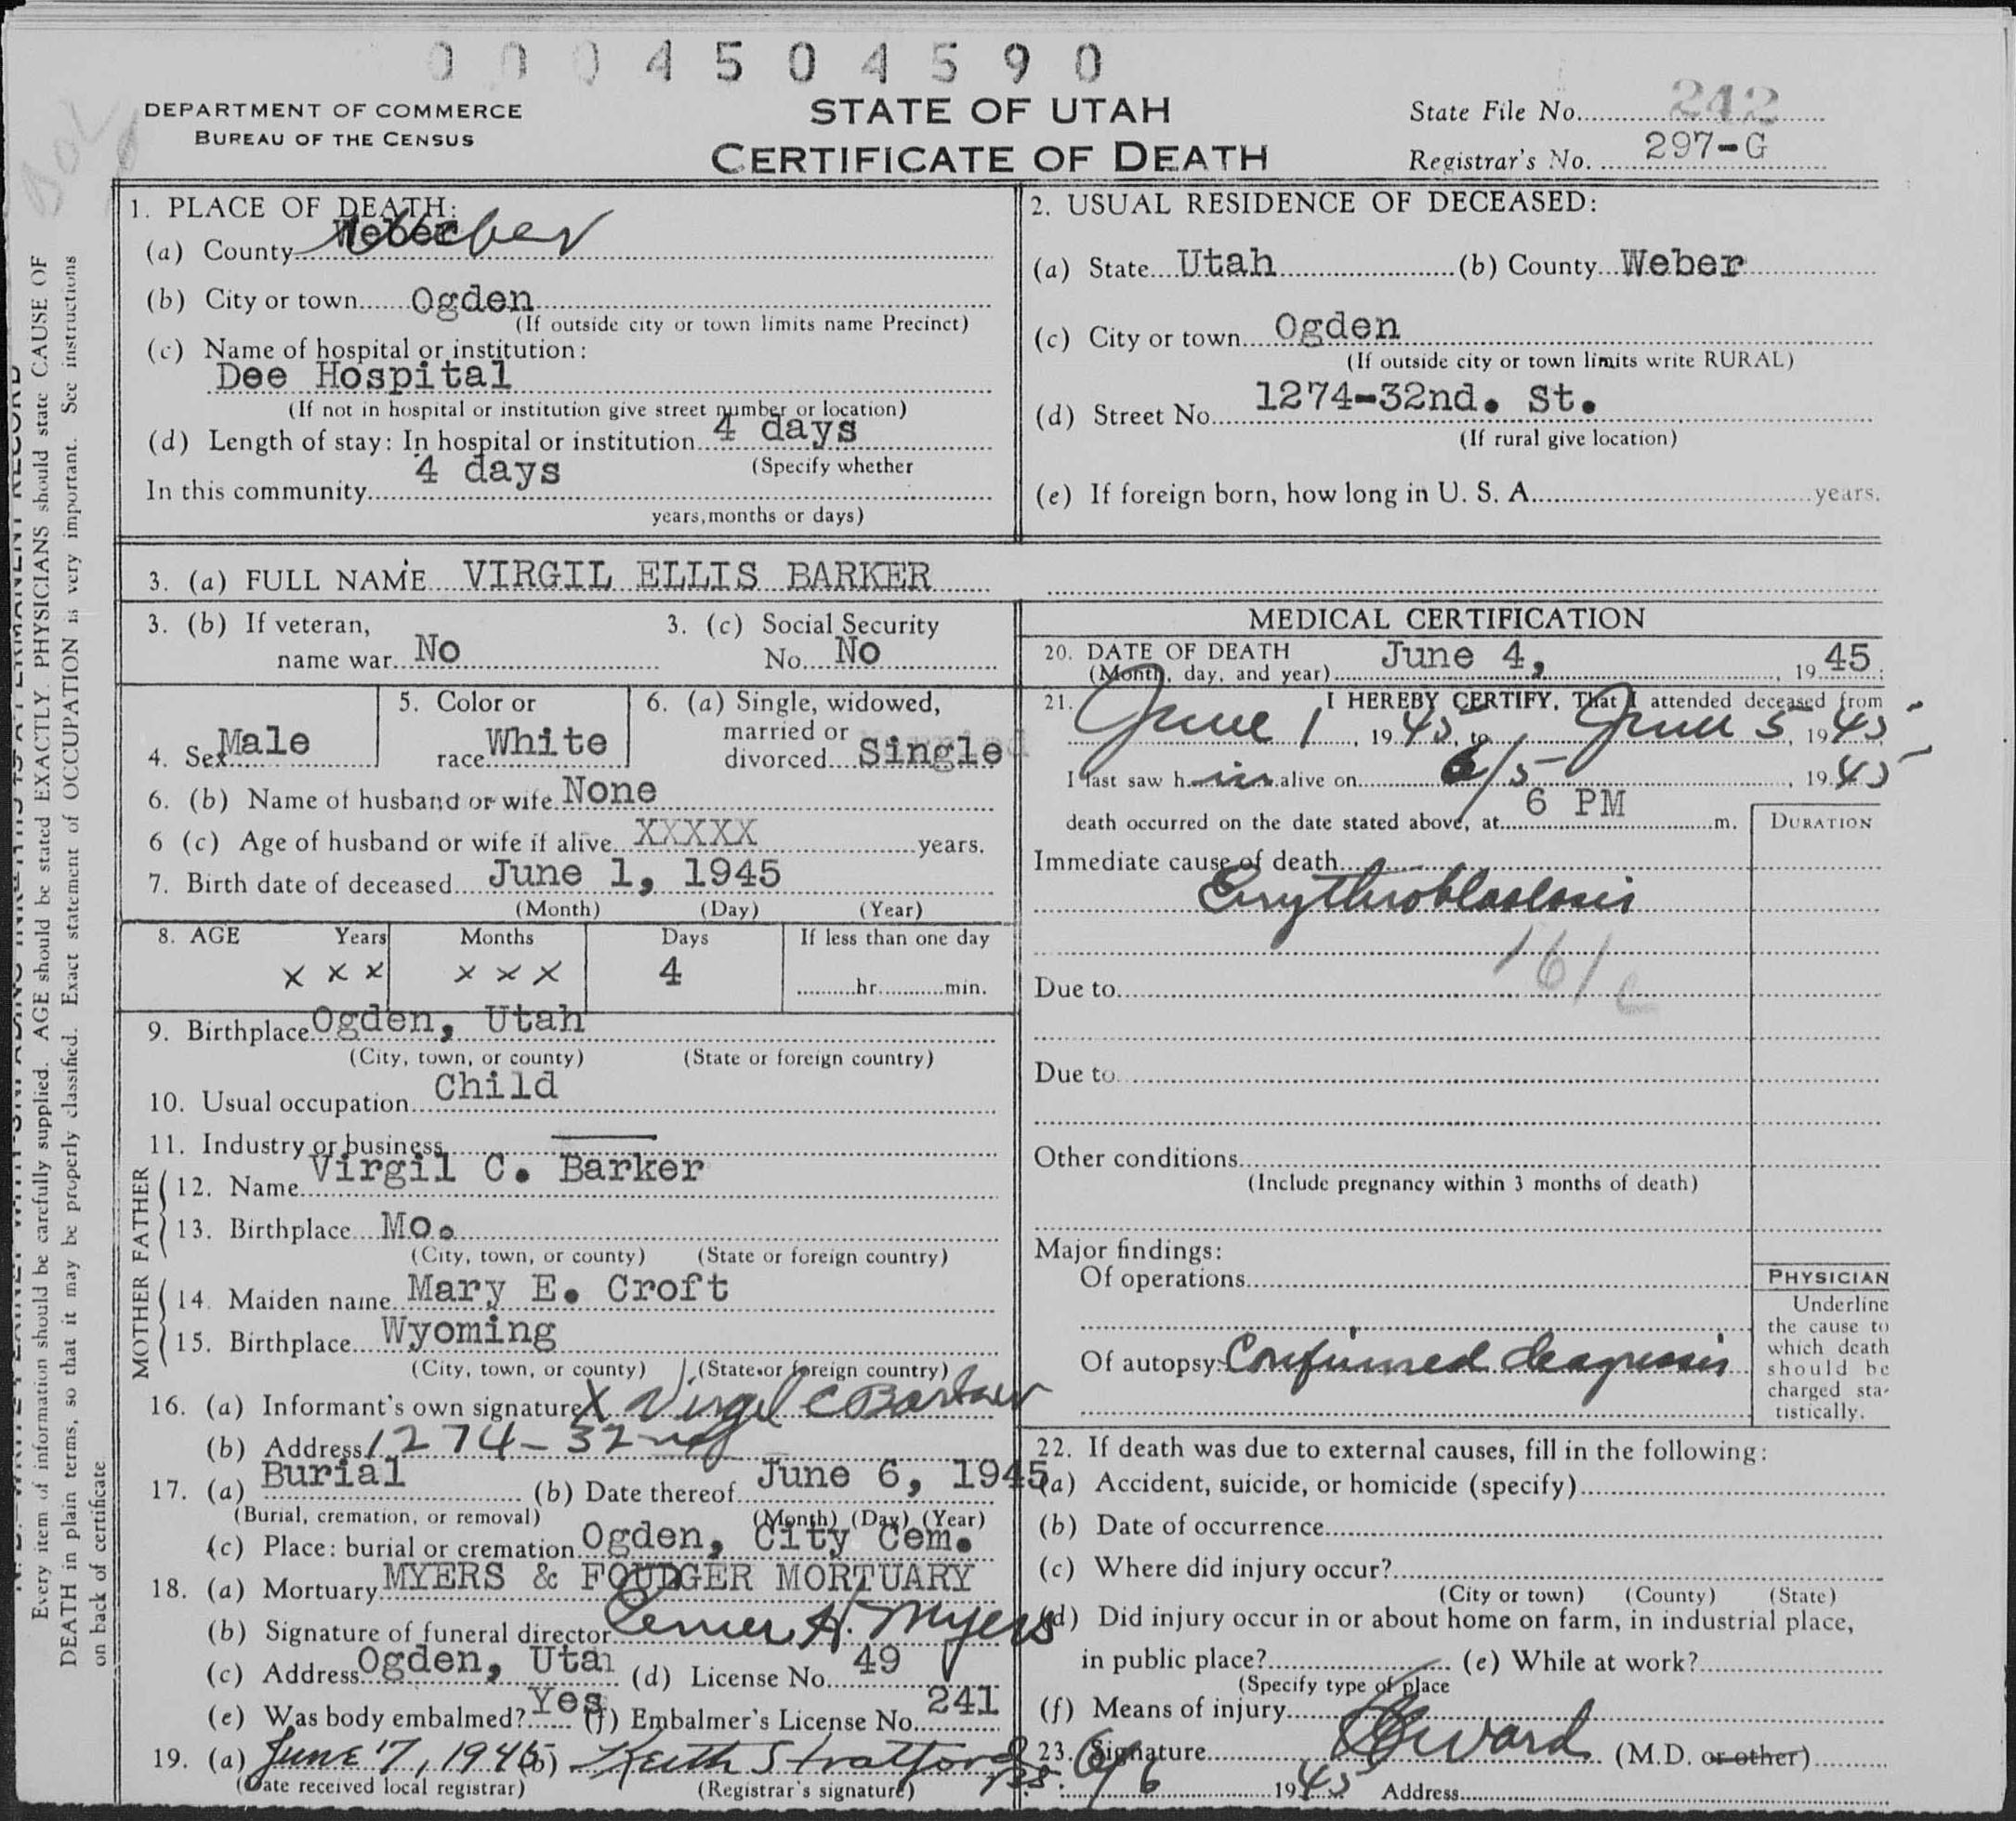 0 0 0 4 5 0 4 5 9 0
DEPARTMENT OF COMMERCE
BUREAU OF THE CENSUS
STATE OF UTAH
CERTIFICATE OF DEATH
State File No. 242
Registrar's No. 297-G
1. PLACE OF DEATH:
(a) County Weber Weber
(b) City or town Ogden
(If outside city or town limits name Precinct)
(c) Name of hospital or institution:
Dee Hospital
(If not in hospital or institution give street number or location)
(d) Length of stay: In hospital or institution 4 days
(Specify whether
In this community 4 days
years, months or days)
2. USUAL RESIDENCE OF DECEASED:
(a) State Utah (b) County Weber
(c) City or town Ogden
(If outside city or town limits write RURAL)
(d) Street No. 1274-32nd. St.
(If rural give location)
(e) If foreign born, how long in U. S. A. years.
3. (a) FULL NAME VIRGIL ELLIS BARKER
3. (b) If veteran,
name war No
3. (c) Social Security
No. No
4. Sex Male
5. Color or
race White
6. (a) Single, widowed,
married or
divorced Single
6. (b) Name of husband or wife None
6 (c) Age of husband or wife if alive XXXXX years.
7. Birth date of deceased June 1, 1945
(Month) (Day) (Year)
8. AGE Years Months Days If less than one day
x x x x x x 4 hr. min.
9. Birthplace Ogden, Utah
(City, town, or county) (State or foreign country)
10. Usual occupation Child
11. Industry or business
FATHER
12. Name Virgil C. Barker
13. Birthplace Mo.
(City, town, or county) (State or foreign country)
MOTHER
14. Maiden name Mary E. Croft
15. Birthplace Wyoming
(City, town, or county) (State or foreign country)
16. (a) Informant's own signature X Virgil C Barker
(b) Address 1274-32nd
17. (a) Burial (b) Date thereof June 6, 1945
(Burial, cremation, or removal) (Month) (Day) (Year)
(c) Place: burial or cremation Ogden, City Cem.
18. (a) Mortuary MYERS & FOULGER MORTUARY
(b) Signature of funeral director H. Myers
(c) Address Ogden, Utah (d) License No. 49
(e) Was body embalmed? Yes (f) Embalmer's License No. 241
19. (a) June 7, 1945 (b) Keith Stratford
(Date received local registrar) (Registrar's signature)
MEDICAL CERTIFICATION
20. DATE OF DEATH
(Month, day, and year) June 4, 1945
21. I HEREBY CERTIFY, That I attended deceased from
June 1, 1945, to June 5, 1945
I last saw him alive on 6/5, 1945
death occurred on the date stated above, at 6 PM m.
DURATION
Immediate cause of death
Erythroblastosis
161c
Due to
Due to
Other conditions
(Include pregnancy within 3 months of death)
Major findings:
Of operations
Of autopsy: Confirmed diagnosis
PHYSICIAN
Underline
the cause to
which death
should be
charged sta-
tistically.
22. If death was due to external causes, fill in the following:
(a) Accident, suicide, or homicide (specify)
(b) Date of occurrence
(c) Where did injury occur?
(City or town) (County) (State)
(d) Did injury occur in or about home on farm, in industrial place,
in public place? (e) While at work?
(Specify type of place
(f) Means of injury
23. Signature Ward (M.D. or other)
6/6 1945 Address
Every item of information should be carefully supplied. AGE should be stated EXACTLY. PHYSICIANS should state CAUSE OF
DEATH in plain terms, so that it may be properly classified. Exact statement of OCCUPATION is very important. See instructions
on back of certificate